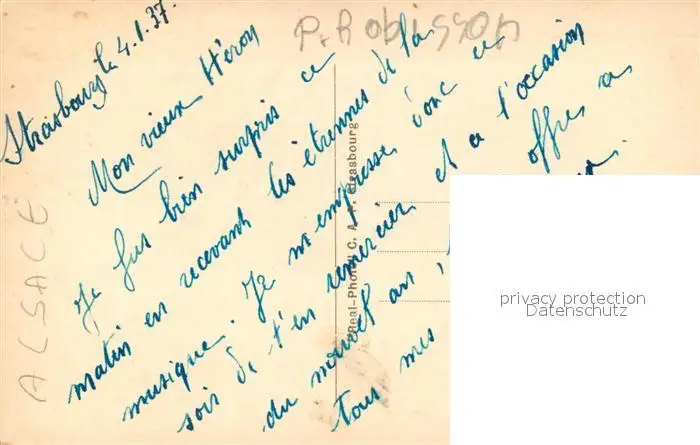 P. Robisson
Strasbourg le 4.1.37.
Mon vieux Héron
Je fus bien surpris ce
matin en recevant les étrennes de la
musique. Je m'empresse donc ce
soir de t'en remercier et a l'occasion
du nouvel an, offres a
tous mes
ALSACE
Real-Photo C. A. P. Strasbourg
privacy protection
Datenschutz